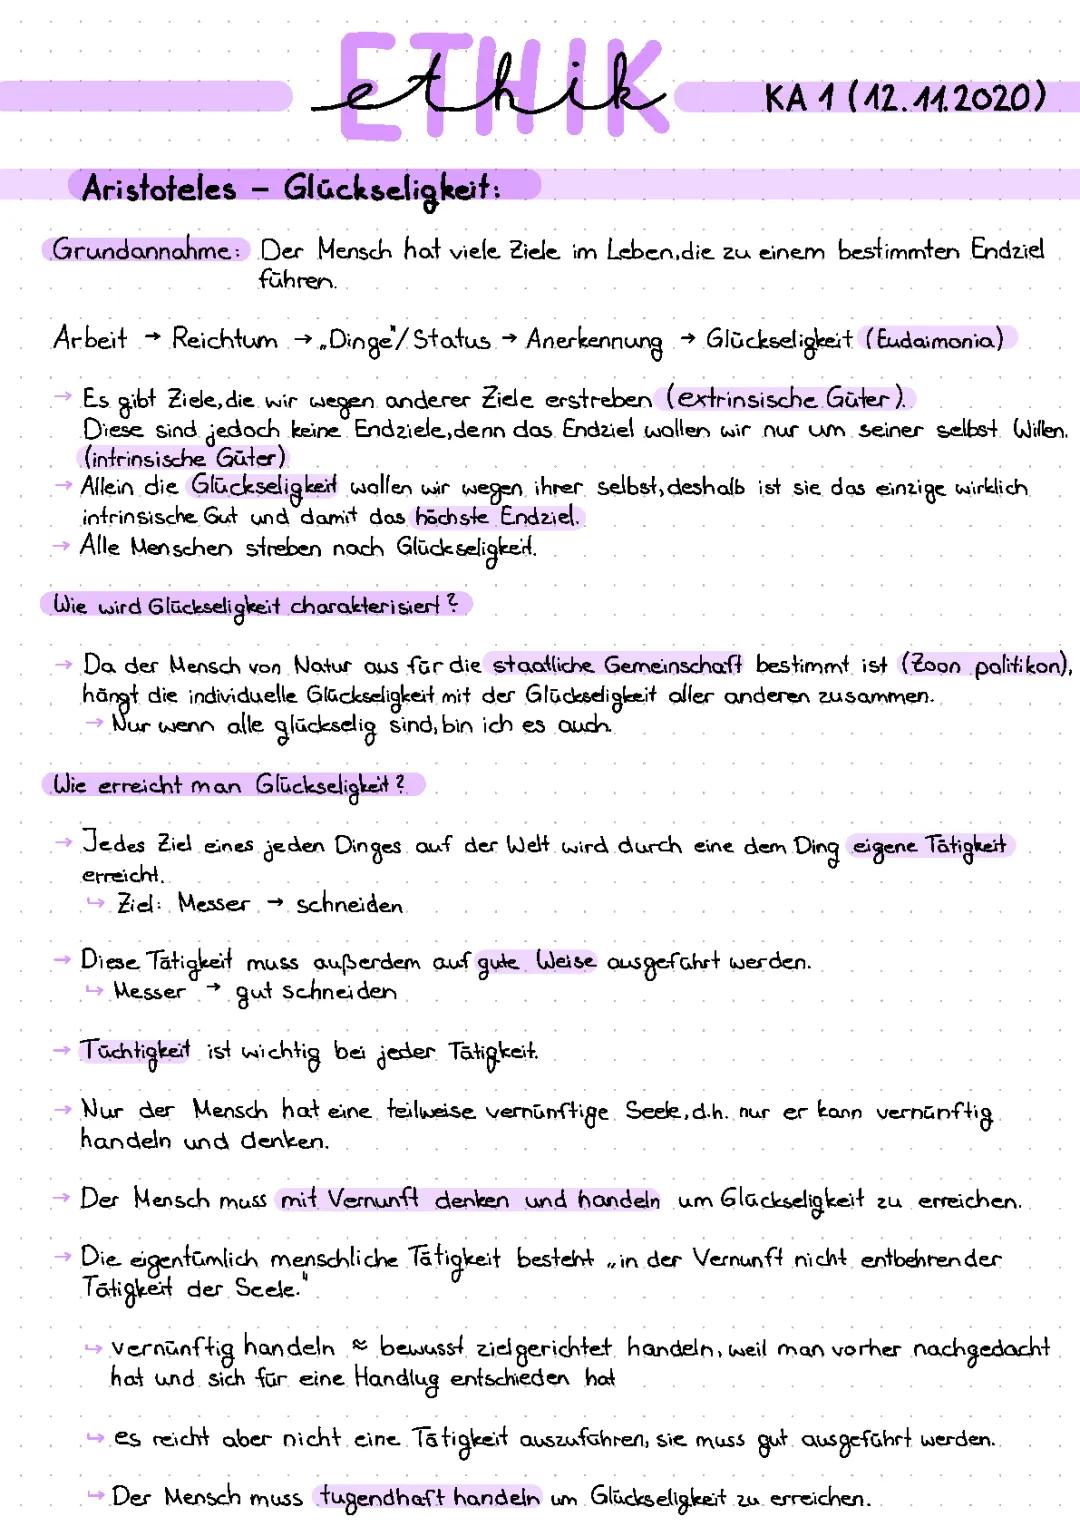 ETHIK
ethik
KA 1 (12.11.2020)
Aristoteles – Glückseligkeit:
Grundannahme: Der Mensch hat viele Ziele im Leben, die zu einem bestimmten Endziel
führen.
Arbeit → Reichtum → „Dinge"/Status → Anerkennung → Glückseligkeit (Eudaimonia)
→ Es gibt Ziele, die wir wegen anderer Ziele erstreben (extrinsische Güter).
Diese sind jedoch keine Endziele, denn das Endziel wollen wir nur um seiner selbst Willen.
(intrinsische Güter)
→ Allein die Glückseligkeit wollen wir wegen ihrer selbst, deshalb ist sie das einzige wirklich
intrinsische Gut und damit das höchste Endziel.
→ Alle Menschen streben nach Glückseligkeit.
Wie wird Glückseligkeit charakterisiert?
→ Da der Mensch von Natur aus für die staatliche Gemeinschaft bestimmt ist (Zoon politikon),
hängt die individuelle Glückseligkeit mit der Glückseligkeit aller anderen zusammen.
→ Nur wenn alle glückselig sind, bin ich es auch.
Wie erreicht man Glückseligkeit?
→ Jedes Ziel eines jeden Dinges auf der Welt wird durch eine dem Ding eigene Tätigkeit
erreicht.
↪ Ziel: Messer → schneiden
→ Diese Tätigkeit muss außerdem auf gute Weise ausgeführt werden.
↪ Messer → gut schneiden
→ Tüchtigkeit ist wichtig bei jeder Tätigkeit.
→ Nur der Mensch hat eine teilweise vernünftige Seele, d.h. nur er kann vernünftig
handeln und denken.
→ Der Mensch muss mit Vernunft denken und handeln um Glückseligkeit zu erreichen.
→ Die eigentümlich menschliche Tätigkeit besteht „in der Vernunft nicht entbehrender
Tätigkeit der Seele."
↪ vernünftig handeln ≈ bewusst zielgerichtet handeln, weil man vorher nachgedacht
hat und sich für eine Handlug entschieden hat
↪ es reicht aber nicht eine Tätigkeit auszuführen, sie muss gut ausgeführt werden.
↪ Der Mensch muss tugendhaft handeln um Glückseligkeit zu erreichen.